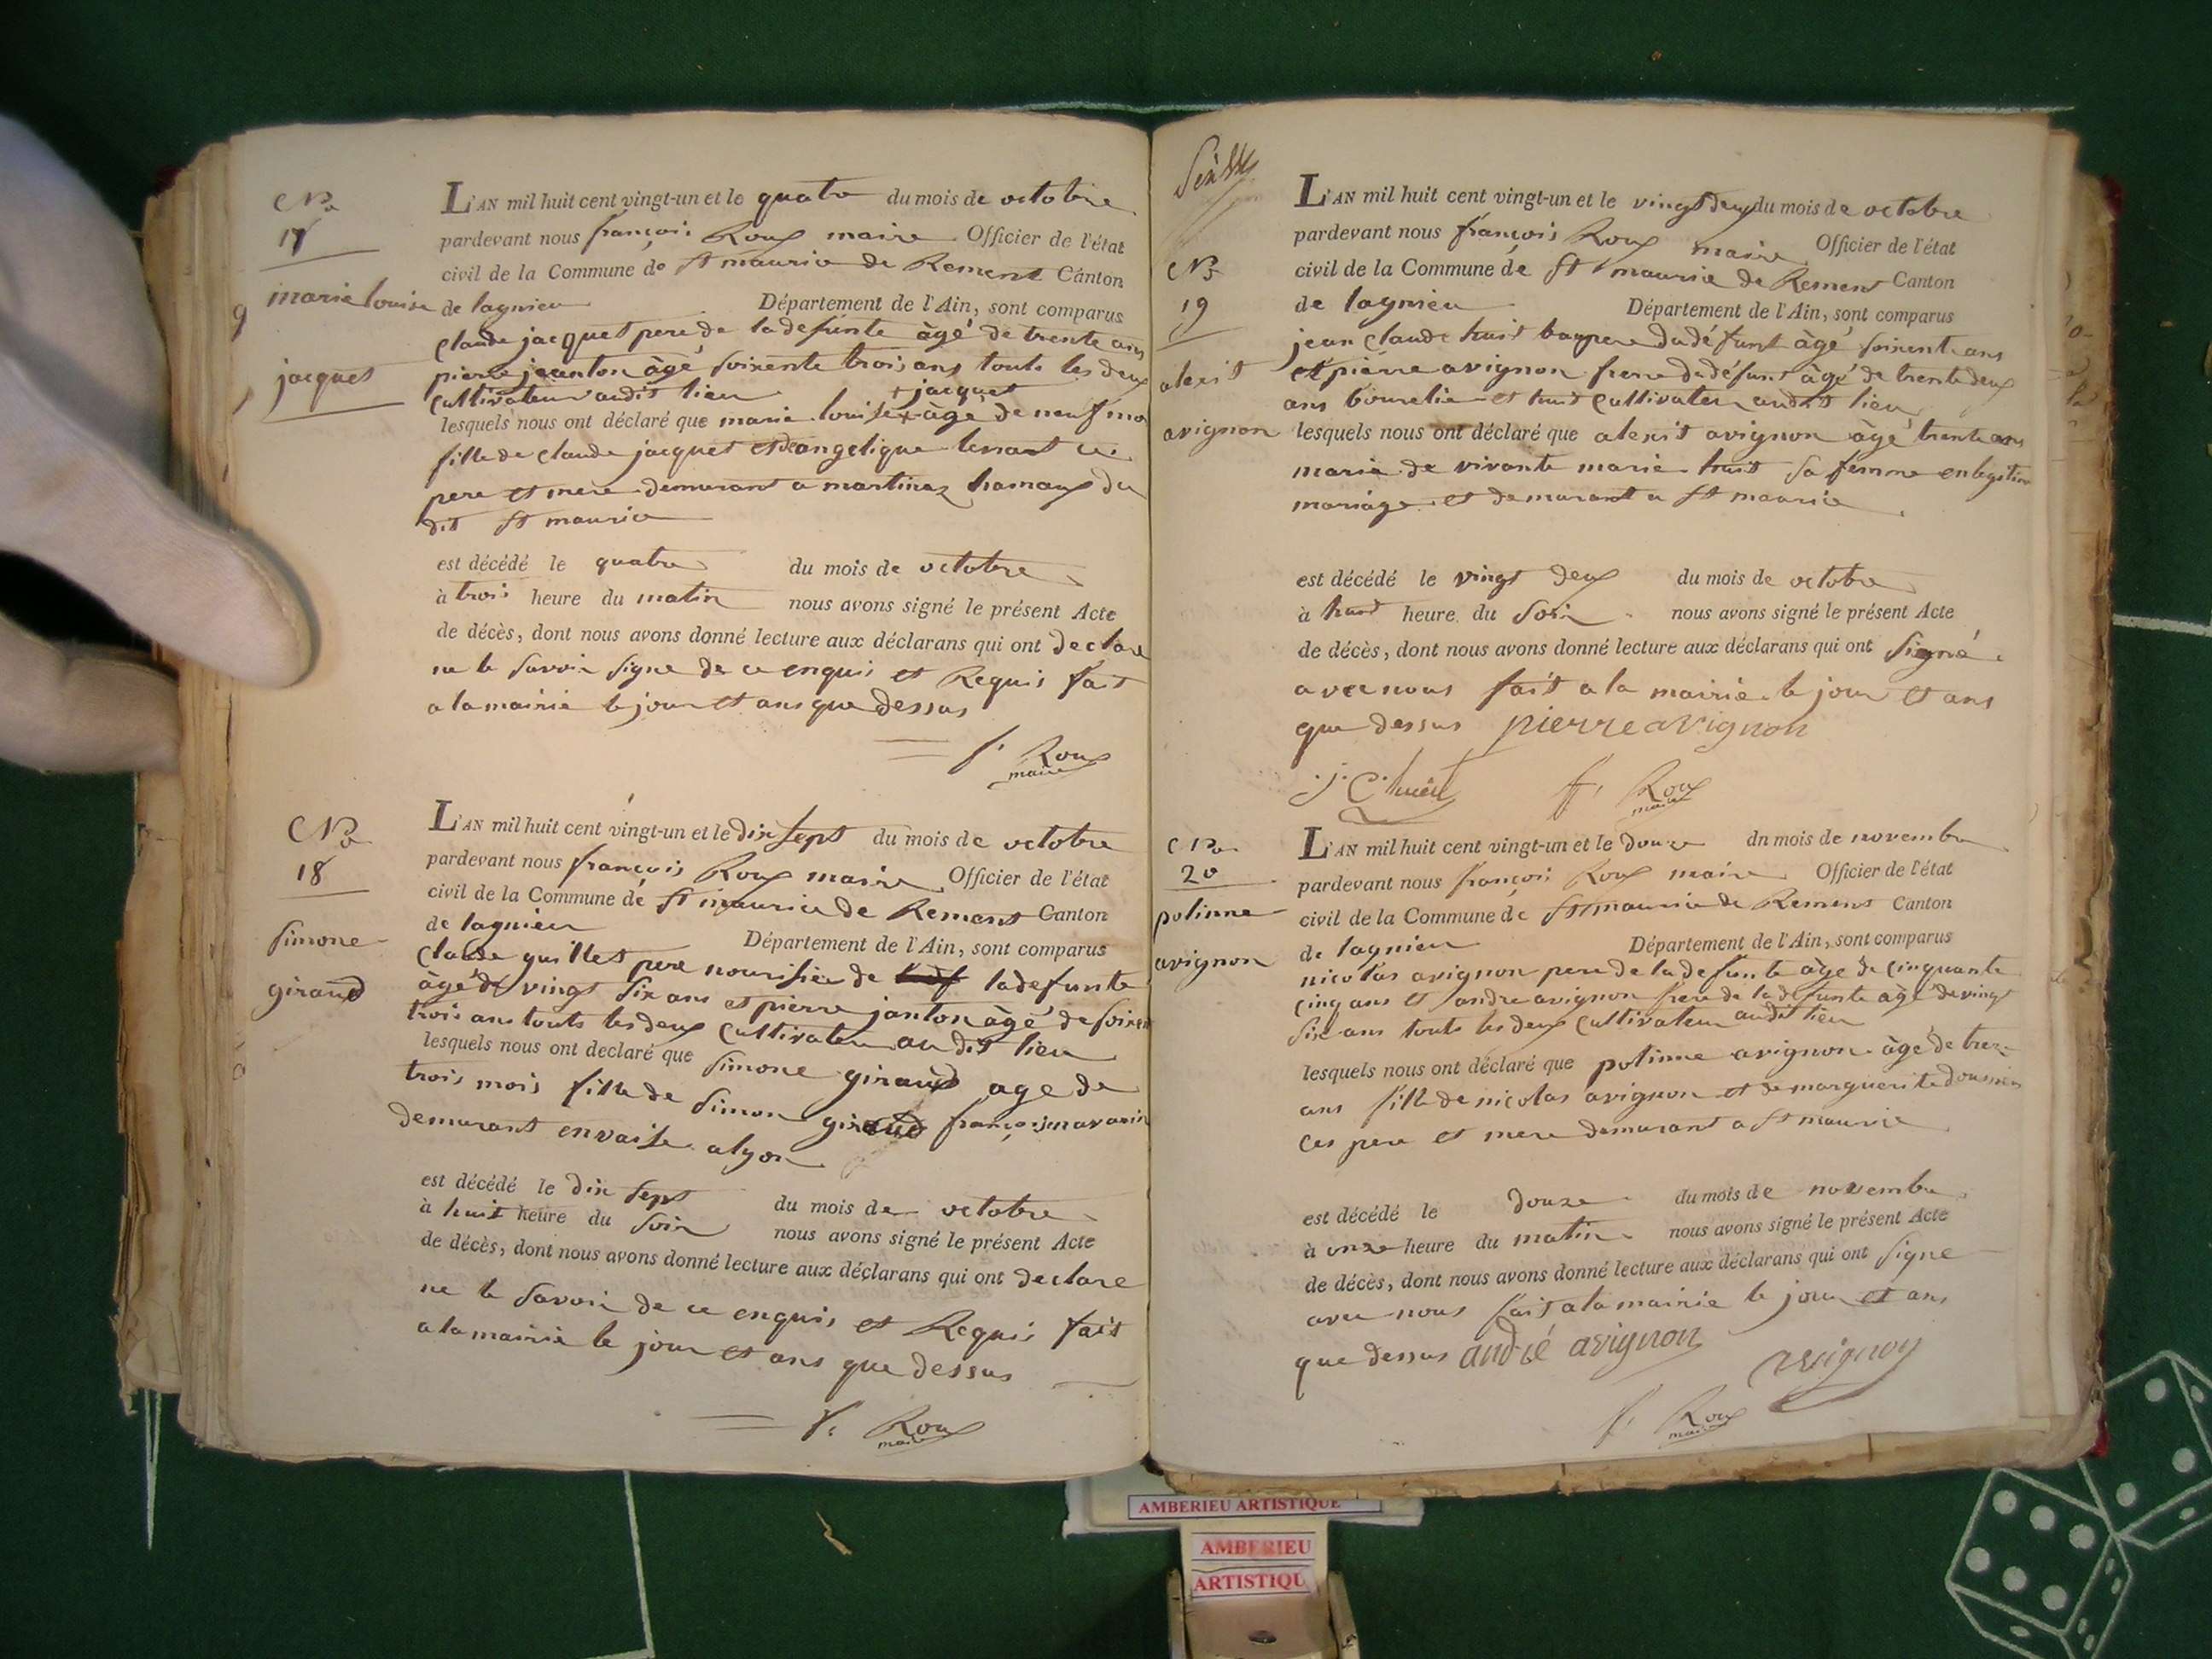 No
17
marie louise
jacquet
L'AN mil huit cent vingt-un et le quatre du mois de octobre
pardevant nous françois Roux maire Officier de l'état
civil de la Commune de St maurice de Remens Canton
de lagnieu Département de l'Ain, sont comparus
claude jacquet pere de la defunte âgé de trente ans
pierre jeanton âgé soixente trois ans touts les deux
cultivateur audit lieu + jacquet
lesquels nous ont déclaré que marie louise + âgé de neuf moi
fille de claude jacquet et de angelique ce
pere et mere demurant a martinaz hamaux du
dit St maurice
est décédé le quatre du mois de octobre
à trois heure du matin nous avons signé le présent Acte
de décès, dont nous avons donné lecture aux déclarans qui ont declare
ne le savoir signe de ce enquis et Requis fait
a la mairie le jour et ans que dessus
f. Roux
maire
No
18
simone
giraud
L'AN mil huit cent vingt-un et le dix sept du mois de octobre
pardevant nous françois Roux maire Officier de l'état
civil de la Commune de St maurice de Remens Canton
de lagnieu Département de l'Ain, sont comparus
claude guillet pere nourisier de ladefunte
âgé de vingt six ans et pierre janton âgé de soixent
trois ans touts les deux cultivateur au dit lieu
lesquels nous ont declaré que simone giraud age de
trois mois fille de simon giraud
demurant envaise a lyon
est décédé le dix sept du mois de octobre
à huit heure du soir nous avons signé le présent Acte
de décès, dont nous avons donné lecture aux déclarans qui ont declare
ne le savoir de ce enquis et Requis fait
a la mairie le jour et ans que dessus
f. Roux
maire
No
19
alexit
avignon
L'AN mil huit cent vingt-un et le vingt deux du mois de octobre
pardevant nous françois Roux maire Officier de l'état
civil de la Commune de St maurice de Remens Canton
de lagnieu Département de l'Ain, sont comparus
jean claude huit baupere du défunt âgé soixent ans
et pierre avignon frere du défunt âgé de trente deux
ans bourelier et huit cultivateur audit lieu
lesquels nous ont déclaré que alexit avignon âgé trente ans
marie de vivante marie huit sa femme en legitim
mariage et demurant a St maurice
est décédé le vingt deux du mois de octobre
à huit heure du soir nous avons signé le présent Acte
de décès, dont nous avons donné lecture aux déclarans qui ont signé
avec nous fait a la mairie le jour et ans
que dessus pierre avignon
f. Roux
maire
No
20
polinne
avignon
L'AN mil huit cent vingt-un et le douze dn mois de novembre
pardevant nous françois Roux maire Officier de l'état
civil de la Commune de St maurice de Remens Canton
de lagnieu Département de l'Ain, sont comparus
nicolas avignon pere de la defunte âgé de cinquante
cinq ans et andre avignon frere de la defunte âgé de vingt
six ans touts les deux cultivateur audit lieu
lesquels nous ont déclaré que polinne avignon âgé de treze
ans fille de nicolas avignon et de marguerite
ces pere et mere demurant a St maurice
est décédé le douze du mois de novembre
à onze heure du matin nous avons signé le présent Acte
de décès, dont nous avons donné lecture aux déclarans qui ont signe
avec nous fait a la mairie le jour et ans
que dessus andré avignon avignon
f. Roux
maire
AMBERIEU ARTISTIQUE
AMBERIEU
ARTISTIQU